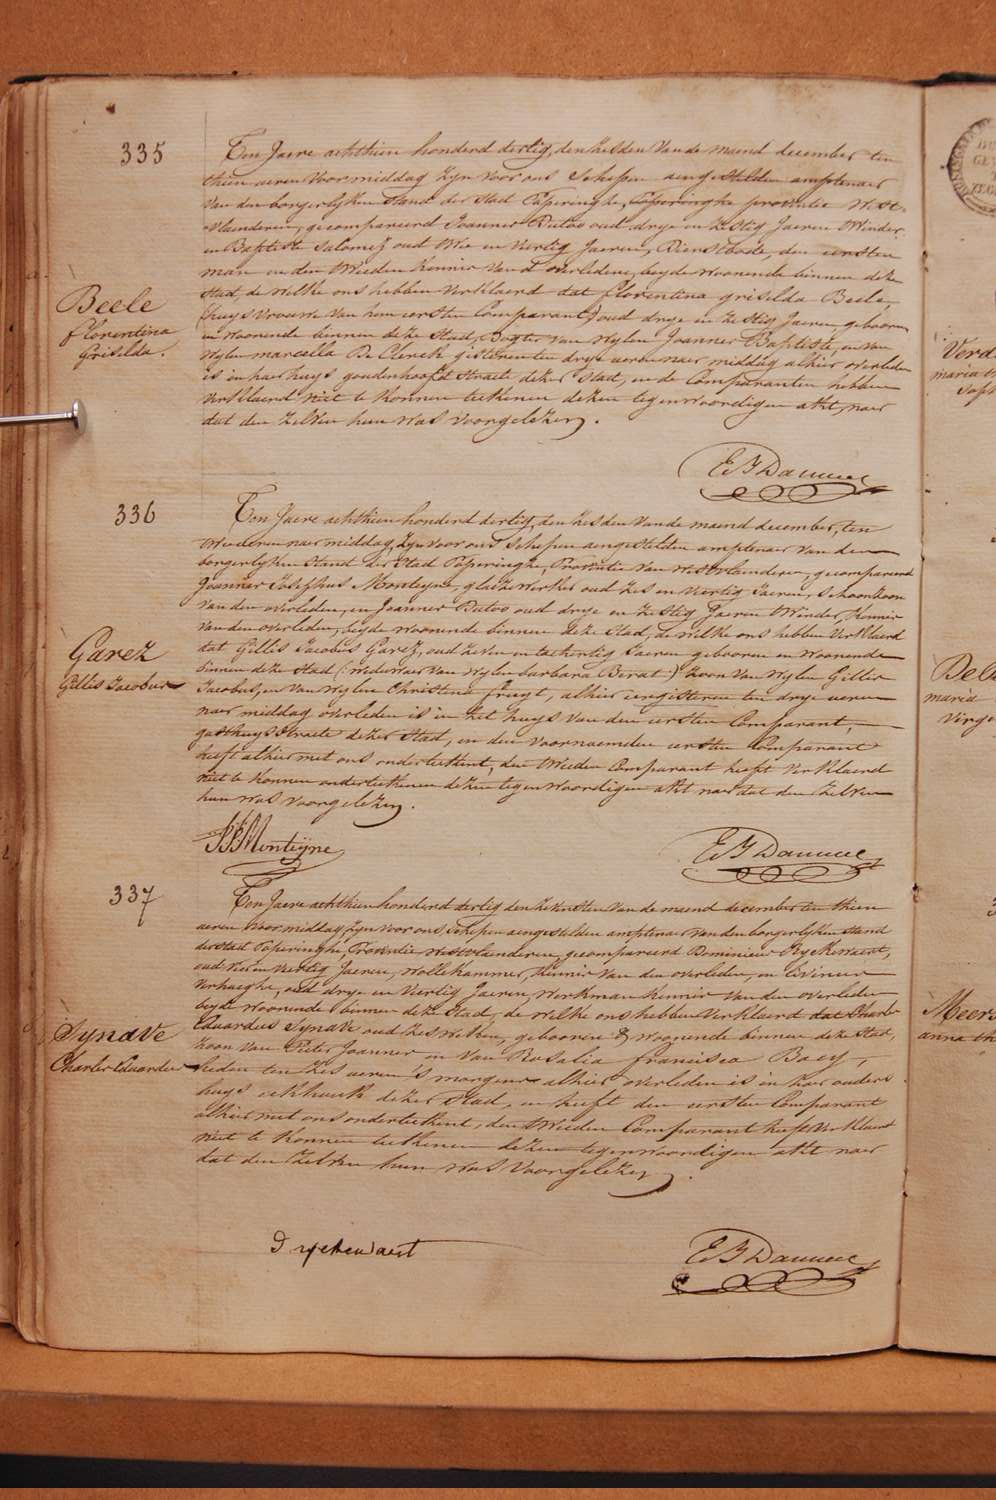 335
Ten Jaere achthien honderd dertig, den zesden van de maend december ten
thien ueren voormiddag zijn voor ons Schepen aengestelden amptenaer
van den borgerlyken stand der Stad Poperinghe, provintie West-
Vlaenderen, gecompareerd Joannes Dutoo oud drye en zestig Jaeren Winder
en Baptiste Salomez oud Wie en viertig Jaeren, Dienstbode, den eersten
man en den tweeden kennis van d'overledene, beyde woonende binnen deze
Stad, de welke ons hebben verklaerd dat florentina griselda Beele,
(huysvrouw van hem eersten Comparant) oud drye en zestig Jaeren geboren
en woonende binnen deze Stad, Dogter van wylen Joannes Baptiste, en van
wylen marcella De Clerck gisteren ten drye ueren naer middag alhier overleden
is in haer huys goudenhoofd straete dezer Stad, en de Comparanten hebben
verklaerd niet te konnen teekenen dezen tegenwoordigen akt, naer
dat den zelven hun was voorgelezen.
Beele
florentina
Griselda.
E B Dauwe
336
Ten Jaere achthien honderd dertig, den zesden van de maend december, ten
twee ueren naer middag, zyn voor ons Schepen aengestelden amptenaer van den
borgerlyken Stand der Stad Poperinghe, Provintie van Westvlaenderen, gecompareerd
Joannes Josephus Monteyne, glazewerker oud zes en viertig Jaeren, Schoonzoon
van den overleden, en Joannes Dutoo oud drye en zestig Jaeren Winder, kennis
van den overleden, beyde woonende binnen deze Stad, de welke ons hebben verklaerd
dat Gillis Jacobus Garez, oud zeven en tachentig Jaeren geboren en woonende
binnen deze Stad (: weduwaer van wylen barbara Berat :) zoon van wylen Gillis
Jacobus, en van wylen Christine fruyt, alhier eergisteren ten drye ueren
naer middag overleden is in het huys van den eersten Comparant,
gasthuysstraete dezer Stad, en den voornoemden eersten Comparant
heeft alhier met ons onderteekent, den tweeden Comparant heeft verklaerd
niet te konnen onderteekenen dezen tegenwoordigen akt naer dat den zelven
hun was voorgelezen.
Garez
Gillis Jacobus
JJ Monteyne
E B Dauwe
337
Ten Jaere achthien honderd dertig den zevensten van de maend december ten thien
ueren voormiddag, zyn voor ons Schepen aengestelden amptenaer van den borgerlyken stand
der stad Poperinghe, Provintie Westvlaenderen, gecompareerd Dominicus Ryckewaert,
oud vier en viertig Jaeren, wollekammer, kennis van den overleden, en Livinus
Verhaeghe, oud drye en viertig Jaeren, werkman kennis van den overleden
beyde woonende binnen deze Stad, de welke ons hebben verklaerd dat Charles
Eduardus Synave oud zes weken, geboren & woonende binnen deze Stad,
zoon van Pieter Joannes en van Rosalia francisca Baey,
heden ten zes ueren 's morgens alhier overleden is in haer ouders
huys eekhoek dezer Stad, en heeft den eersten Comparant
alhier met ons onderteekent, den tweeden Comparant heeft verklaerd
niet te konnen teekenen dezen tegenwoordigen akt naer
dat den zelven hun was voorgelezen.
Synave
Charles Eduardus
D ryckewaert
E B Dauwe
maria
maria
anna